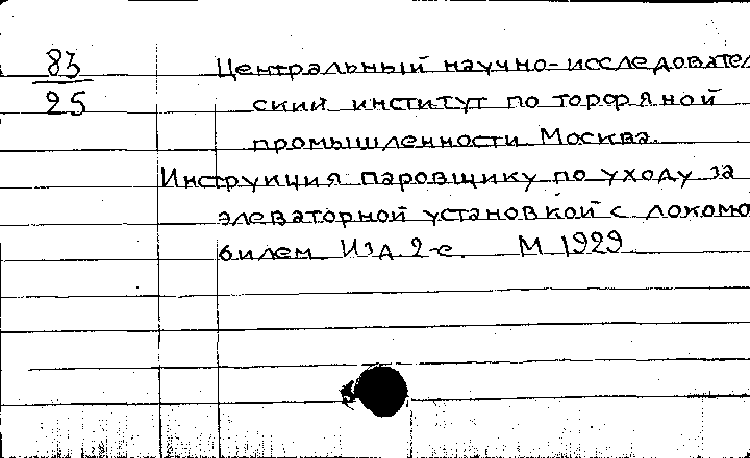 83
25
Центральный научно-исследовател
ский институт по торфяной
промышленности Москва.
Инструкция паровщику по уходу за
элеваторной установкой с локомо
билем Изд. 2-е. М 1929